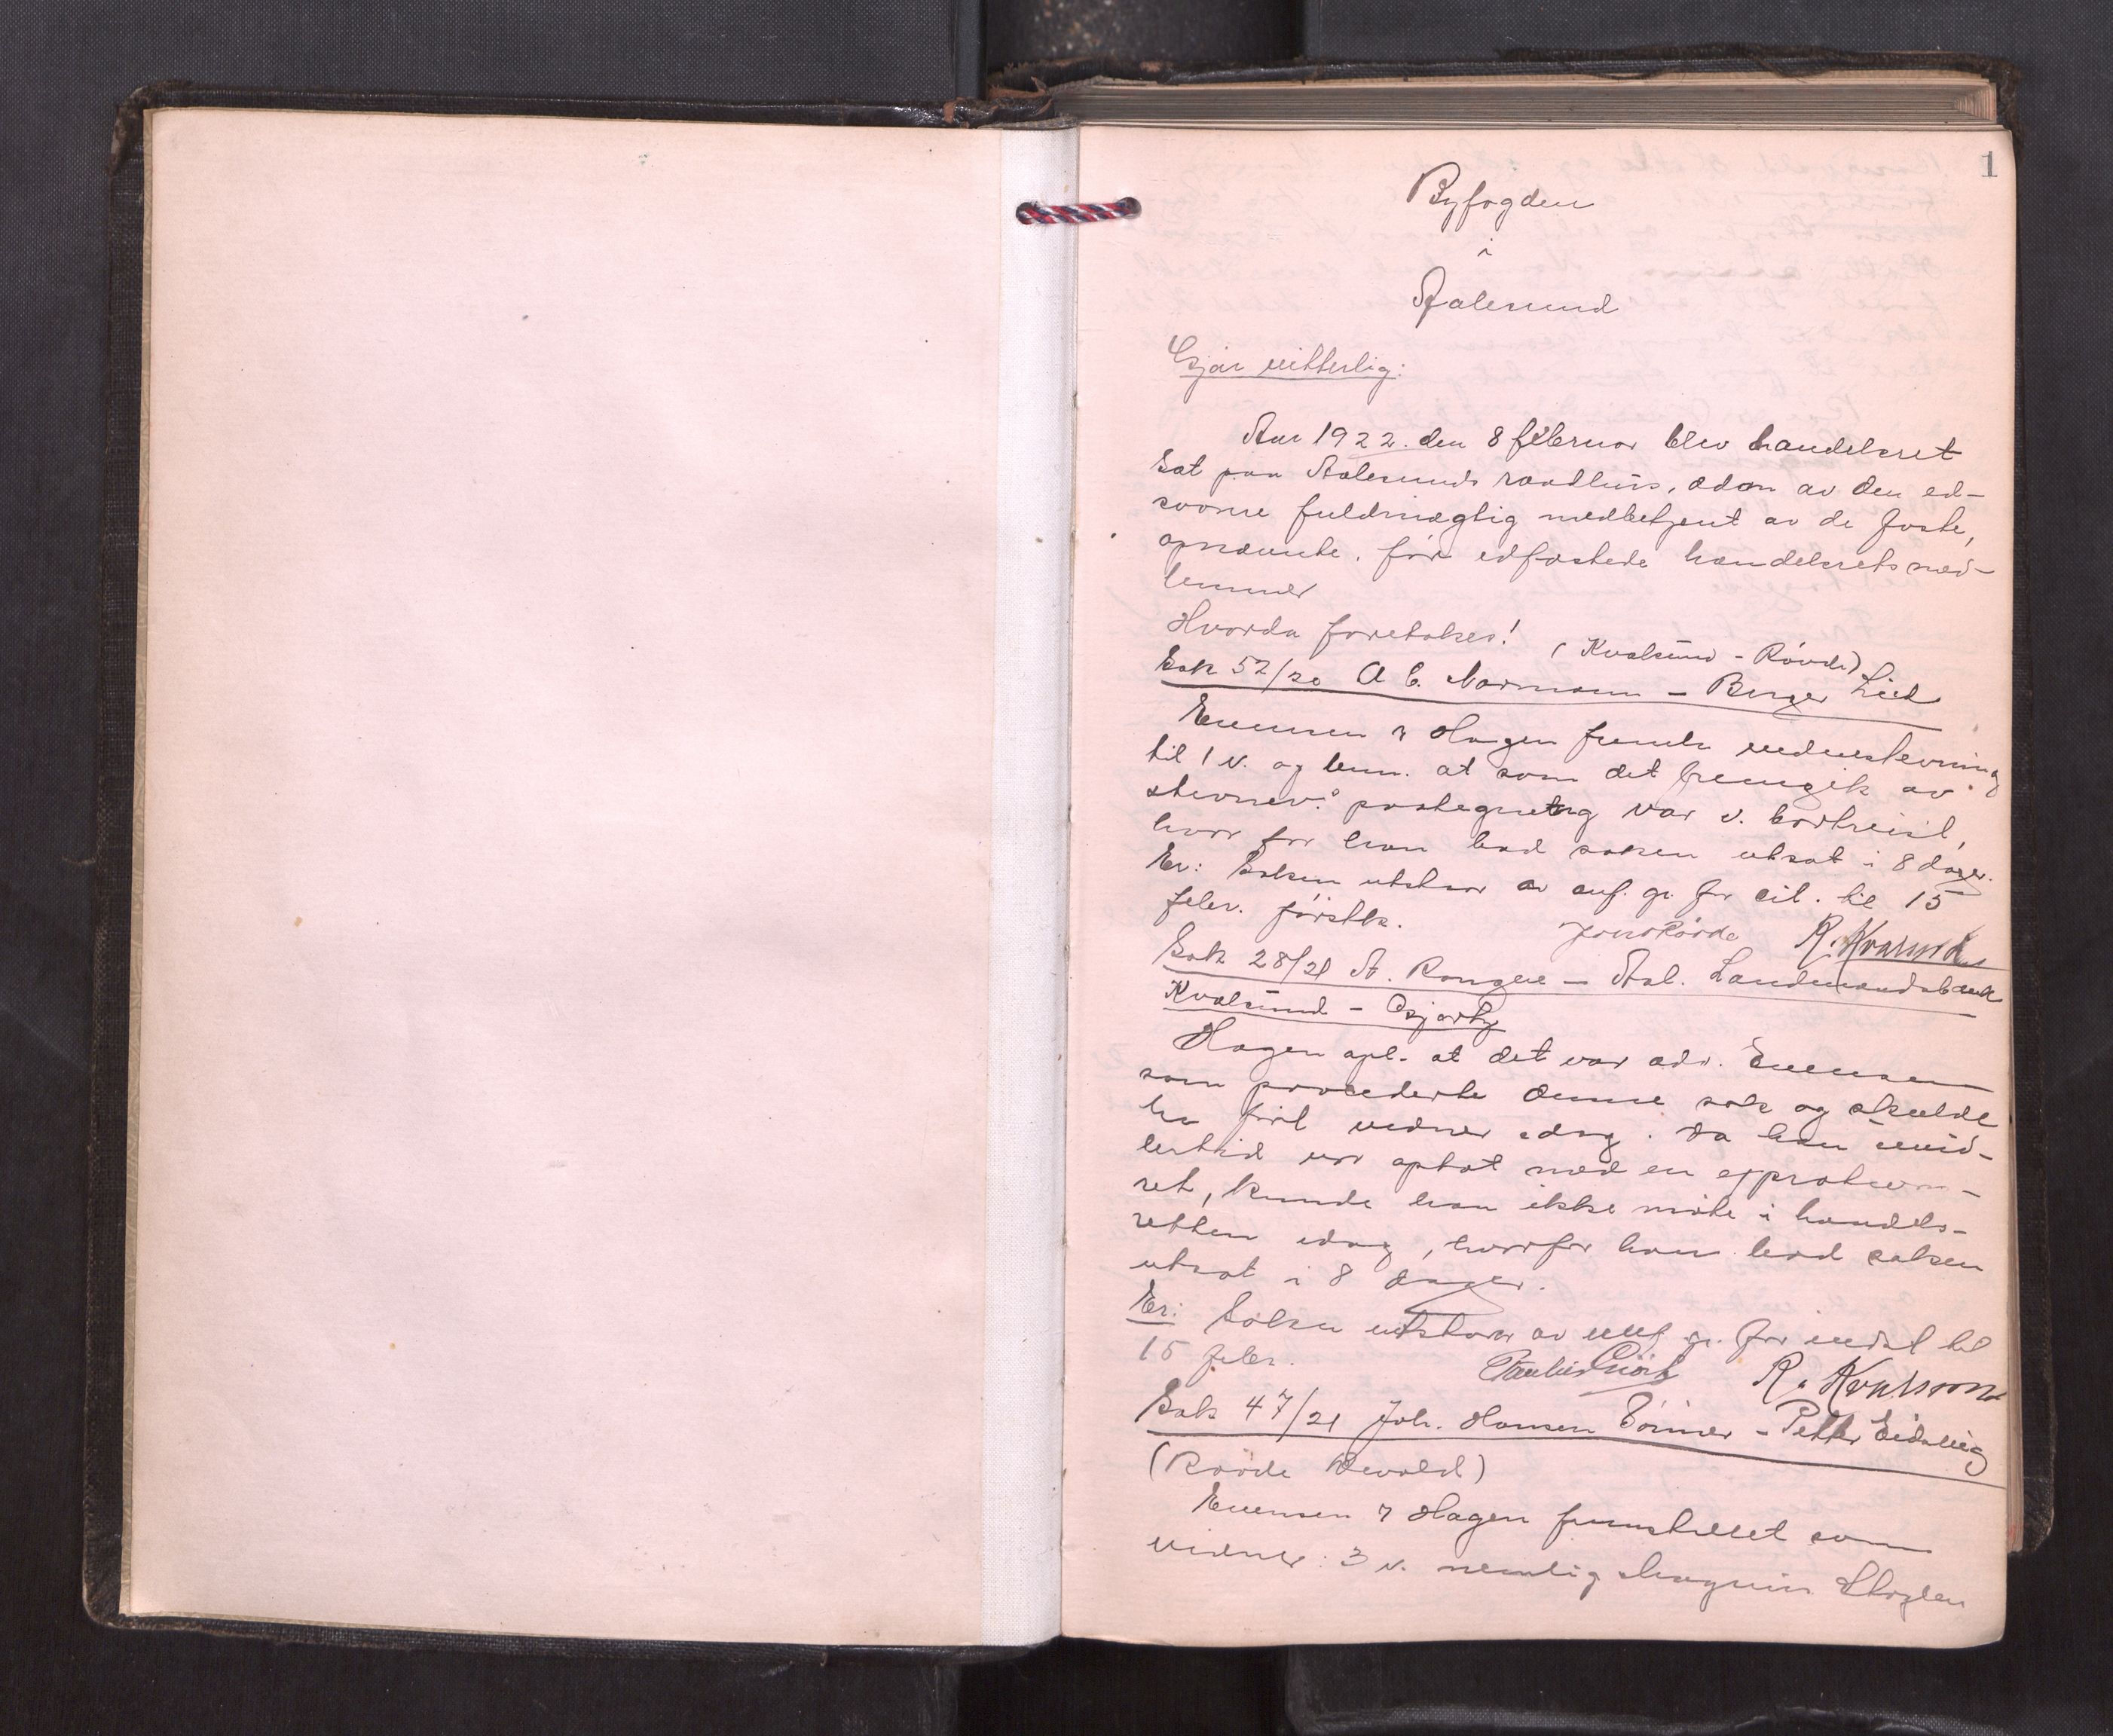 1
Byfogden
i
Aalesund
Gjør vitterlig:
Aar 1922. den 8 februar blev handelsret
sat paa Aalesunds raadhus, adm av den ed-
svorne fuldmægtig medbetjent av de faste,
opnævnte, før edfæstede handelsretsmed-
lemmer
Hvorda foretokes!
(Kvalsund - Røvde)
Sak 52/20 A C. Normann - Berger Lied
Evensen v Hagen fremla vidnestevning
til 1 v. og bem. at som det fremgik av
stevnev.s paategning var v. bortreist,
hvorfor han bad saken utsat i 8 dager.
Er: Saken utstaar av anf. gr. for cit. til 15
febr. førstk.
Jens Røvde R. Kvalsund
Sak 28/21 A. Rongve - Aal. Landmandsbank
Kvalsund - Gjørtz
Hagen opl. at det var adv. Evensen
som procederte denne sak og skulde
ha ført vidner idag. Da han imid-
lertid var optat med en expropriations-
ret, kunde han ikke møte i handels-
retten idag, hvorfor han bad saken
utsat i 8 dager.
Er: Saken utstaar av anf. gr. for indst til
15 febr.
Gjørtz R. Kvalsund
Sak 47/21 Joh. Hansen Sønner - Petter Eidsvig
(Røvde Devold)
Evensen v Hagen fremstillet som
vidner: 3 v. nemlig Magnus